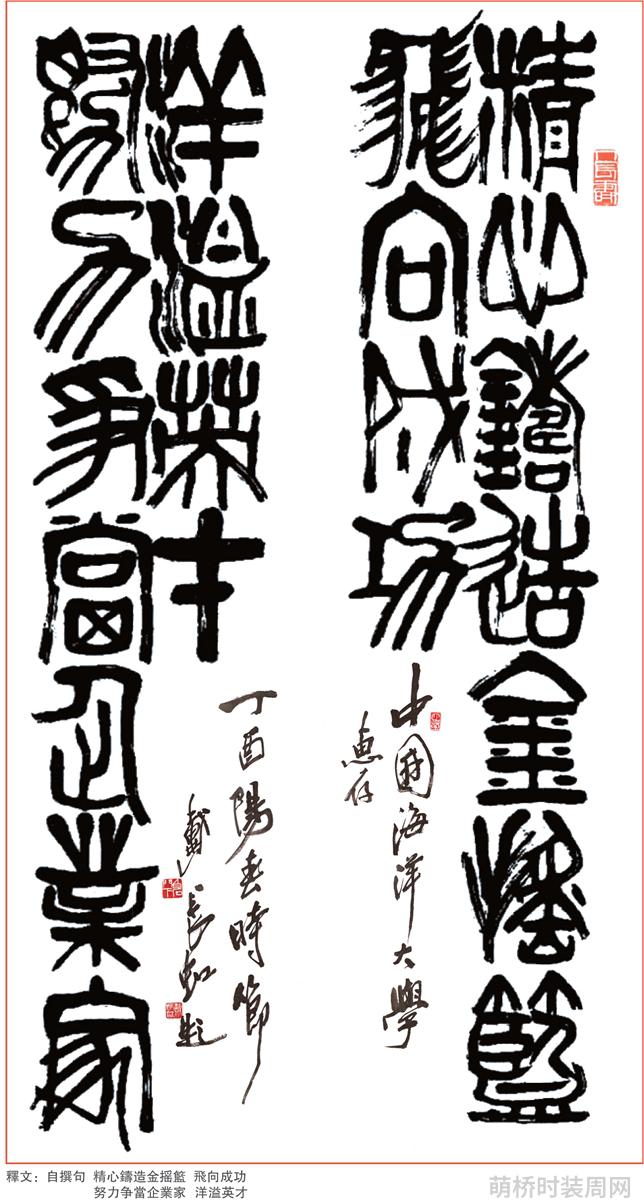 精心鑄造金摇籃
飛向成功
中國海洋大學
惠存
努力争當企業家
洋溢英才
丁酉陽春時節
戴長虹題
釋文：自撰句 精心鑄造金摇籃 飛向成功
努力争當企業家 洋溢英才
萌桥时装周网